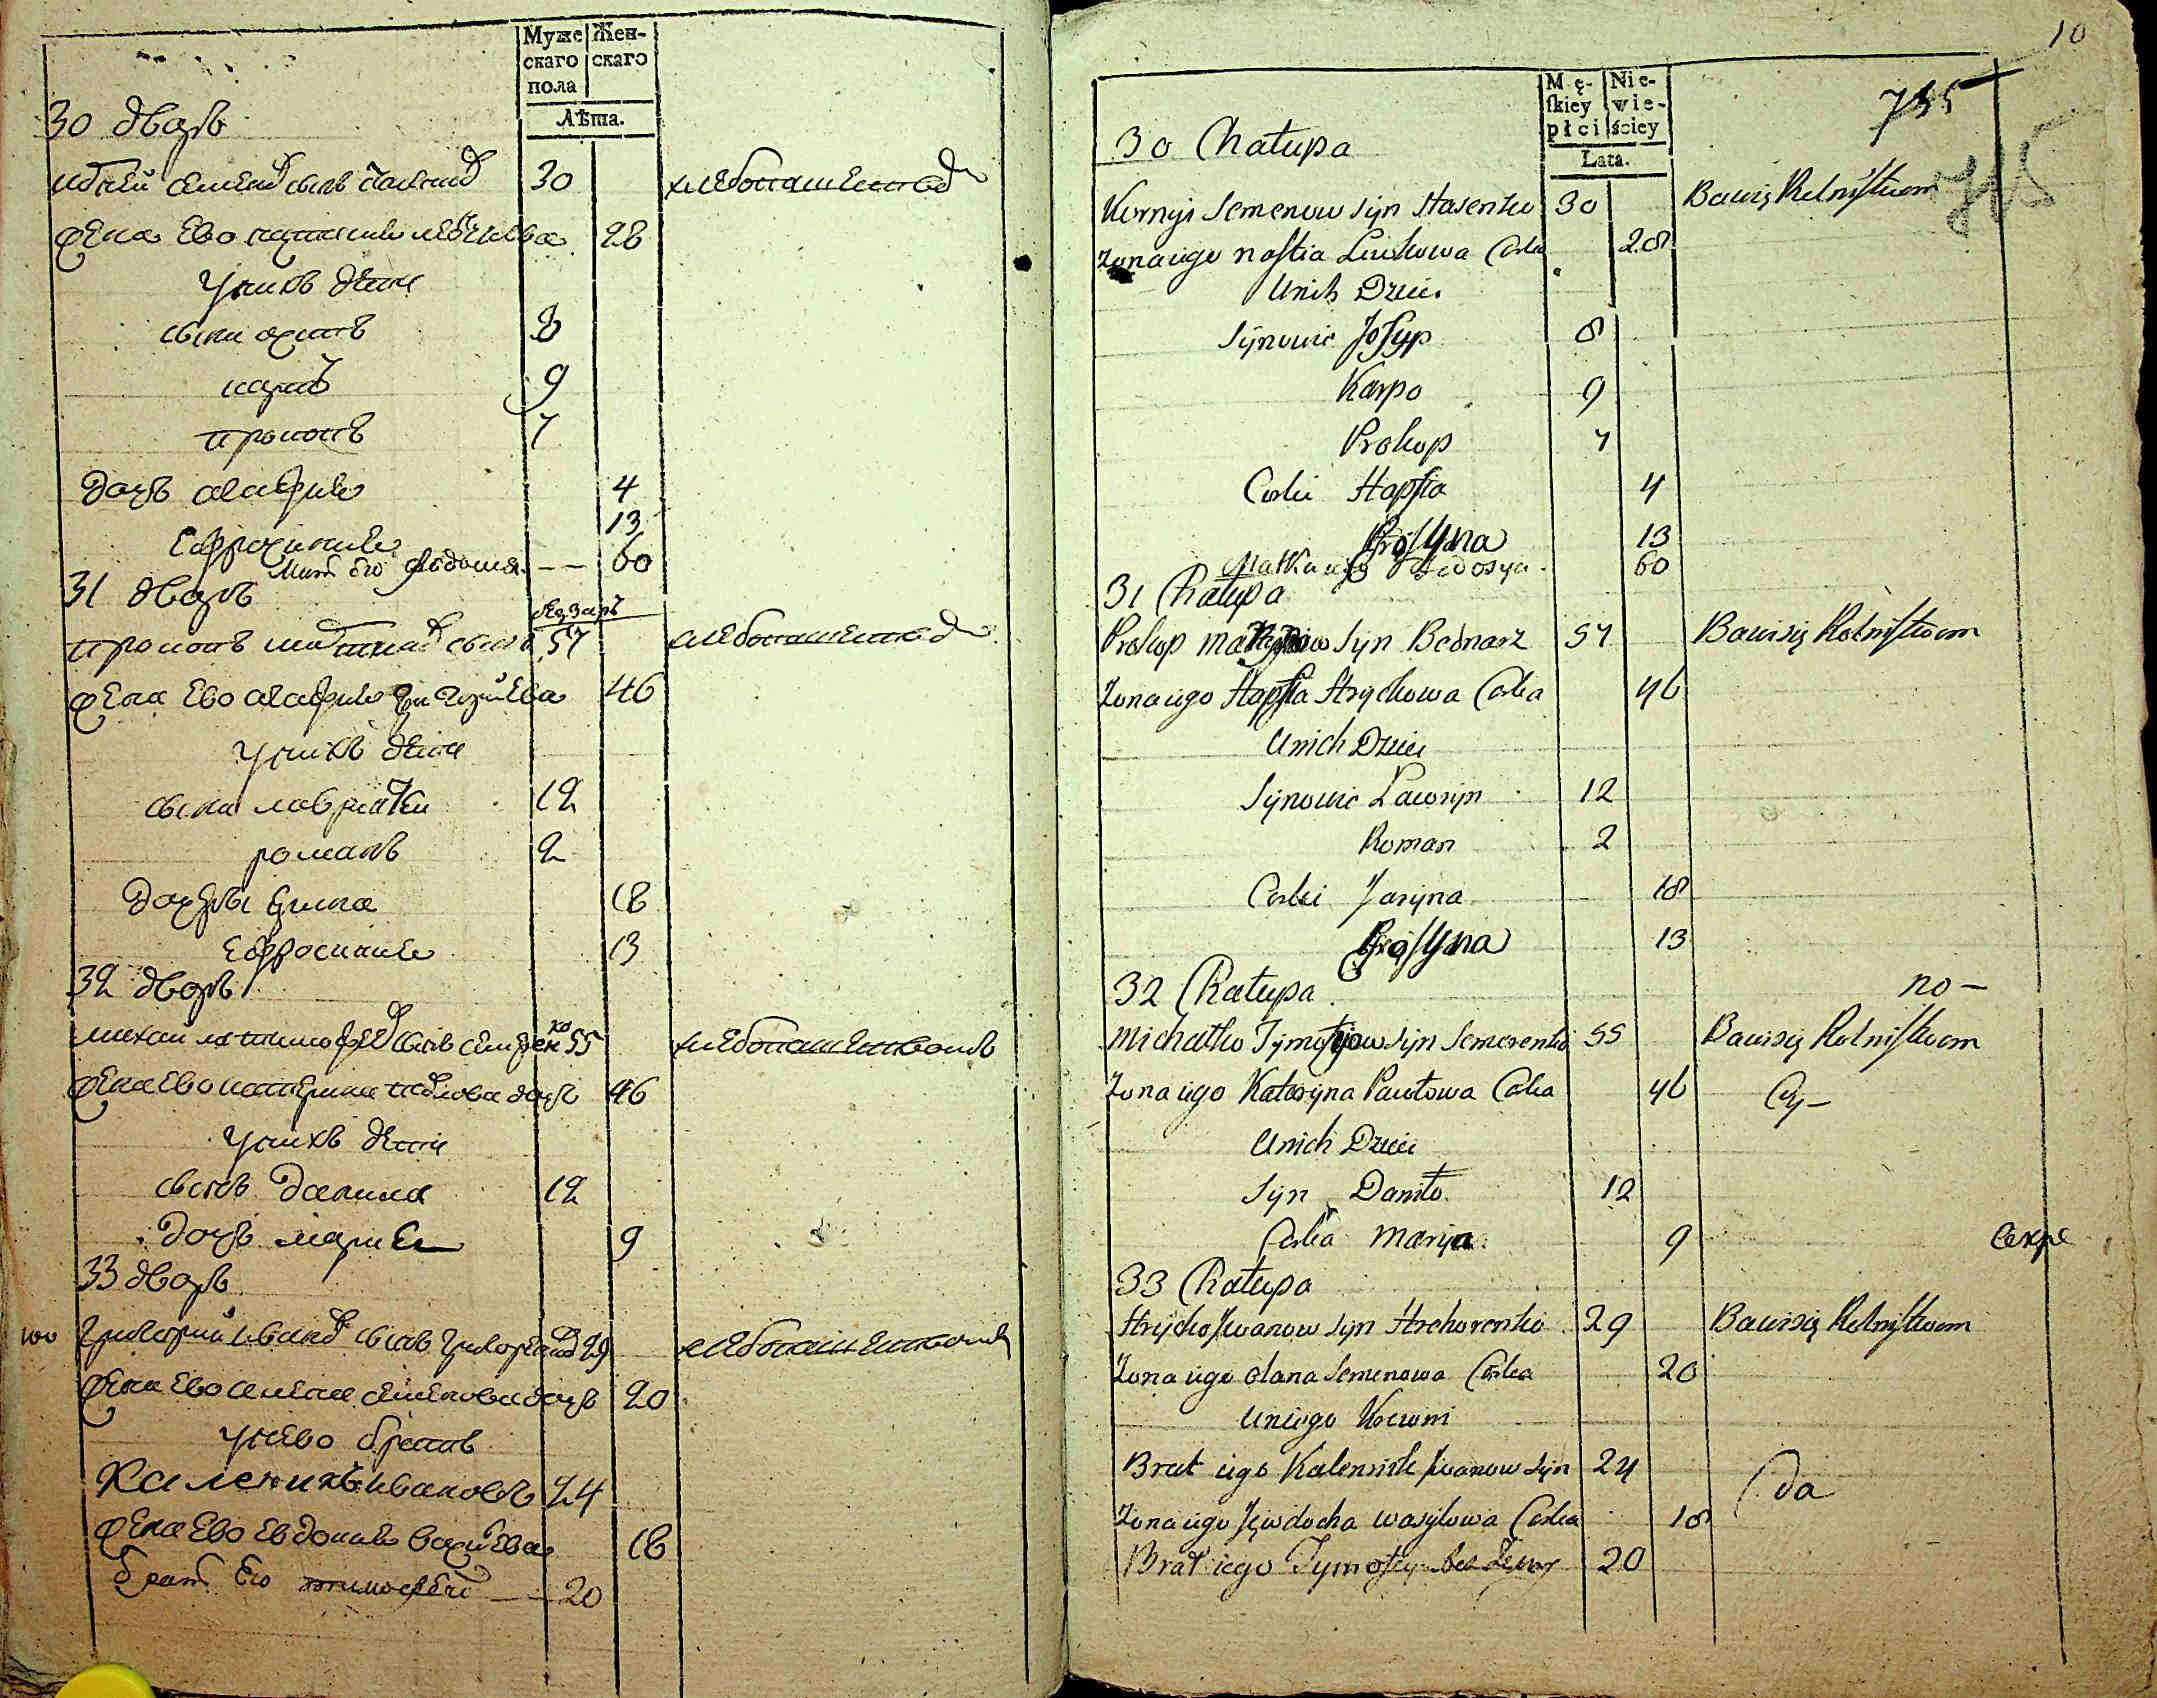 Муже
скаго
пола
Жен-
скаго
Лѣта.
30 дворъ
30
хлебопашествомъ
жена ево 28
у нихъ дети
сыни осипъ 8
карпъ 9
прокопъ 7
дочь агафия 4
Ефросиния 13
Мать Его Федосия -- 60
31 дворъ
прокопъ сынъ Бондарь 57 хлебопашествомъ
жена ево агафия григорьева 46
у нихъ дети
сыни лаврентий 12
романъ 2
дочери ирина 18
Ефросиния 13
32 дворъ
михайла тимофеевъ сынъ семеренко 55 хлебопашествомъ
жена ево катерина павлова дочь 46
у нихъ дети
сынъ данила 12
дочь мария 9
33 дворъ
григорий ивановъ сынъ 29 хлебопашествомъ
жена ево семенова дочь 20
у нево братъ
Каленикъ ивановъ 24
жена ево евдокия василева 18
братъ Его тимофей -- 20
10
Mę-
skiey
płci
Nie-
wie-
ściey
Lata.
735
30 Chałupa
Kornyi Semenow Syn Stasenko 30 Bawi się Rolnistwem
Zona iego nastia Lewkowa Corka 28
U nich Dzieci
Synowie Josyp 8
Karpo 9
Prokop 7
Corki Hapka 4
Prosyna 13
Matka iego Fedosya 60
31 Chałupa
Prokop Syn Bednarz 57 Bawi się Rolnistwem
Zona iego Hapka Hrychowa Corka 46
U nich Dzieci
Synowie Lawryn 12
Roman 2
Corki Jaryna 18
Prosyna 13
32 Chałupa
no —
Michałko Tymofijow Syn Semerenko 55 Bawi się Rolnistwem
Zona iego Kateryna Pawłowa Corka 46
U nich Dzieci
Syn Daniło 12
Corka Marya 9
33 Chałupa
Hrycko Iwanow Syn Hrehorenko 29 Bawi się Rolnistwem
Zona iego Olana Semenowa Corka 20
U niego Krewni
Brat iego Kalennik Iwanow Syn 24
да
Zona iego Jewdocha Wasylowa Corka 18
Brat iego Tymofiy bez Zony 20